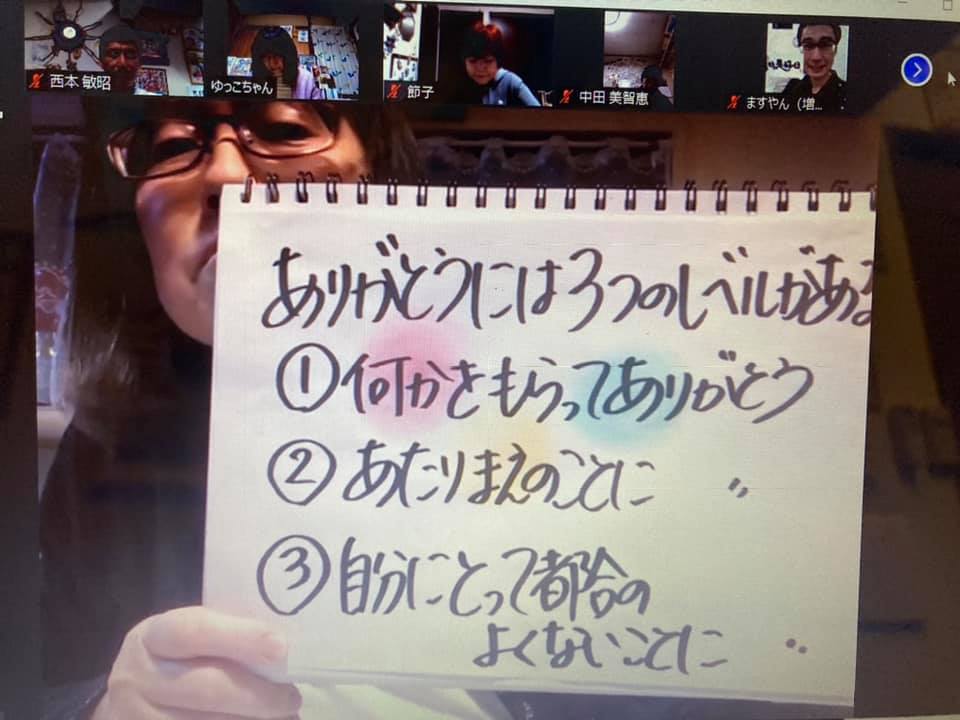 西本 敏昭
ゆっこちゃん
節子
中田 美智恵
ますやん（増...
ありがとうには3つのレベルがある
①何かをもらってありがとう
②あたりまえのことに 〃
③自分にとって都合の
よくないことに 〃